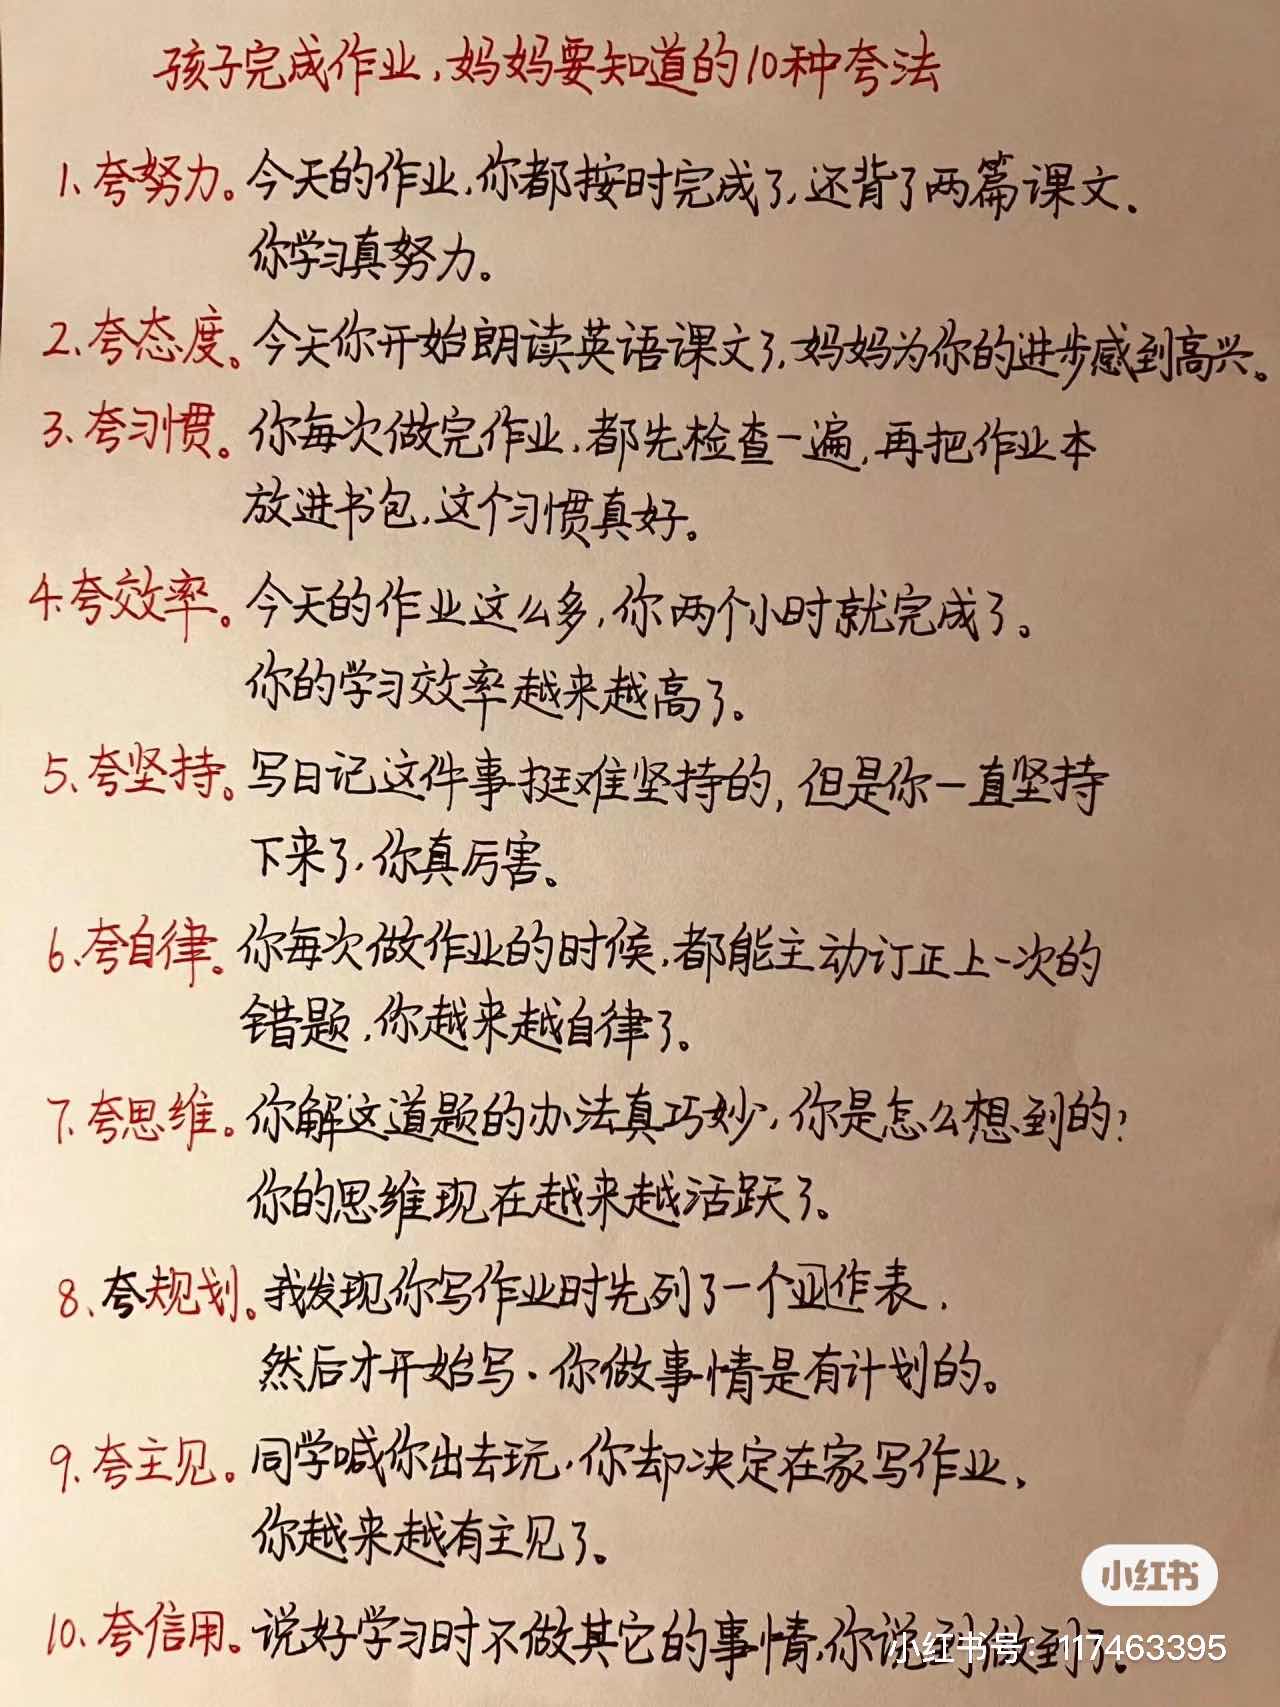 孩子完成作业,妈妈要知道的10种夸法
1、夸努力。今天的作业,你都按时完成了,还背了两篇课文.
你学习真努力。
2、夸态度。今天你开始朗读英语课文了,妈妈为你的进步感到高兴。
3、夸习惯。你每次做完作业,都先检查一遍,再把作业本
放进书包,这个习惯真好。
4.夸效率。今天的作业这么多,你两个小时就完成了。
你的学习效率越来越高了。
5、夸坚持。写日记这件事挺难坚持的,但是你一直坚持
下来了,你真厉害。
6、夸自律。你每次做作业的时候,都能主动订正上一次的
错题,你越来越自律了。
7、夸思维。你解这道题的办法真巧妙,你是怎么想到的?
你的思维现在越来越活跃了。
8、夸规划。我发现你写作业时先列了一个作表,
然后才开始写.你做事情是有计划的。
9、夸主见。同学喊你出去玩,你却决定在家写作业,
你越来越有主见了。
小红书
10、夸信用。说好学习时不做其它的事情,你说到做到了。
小红书号:117463395